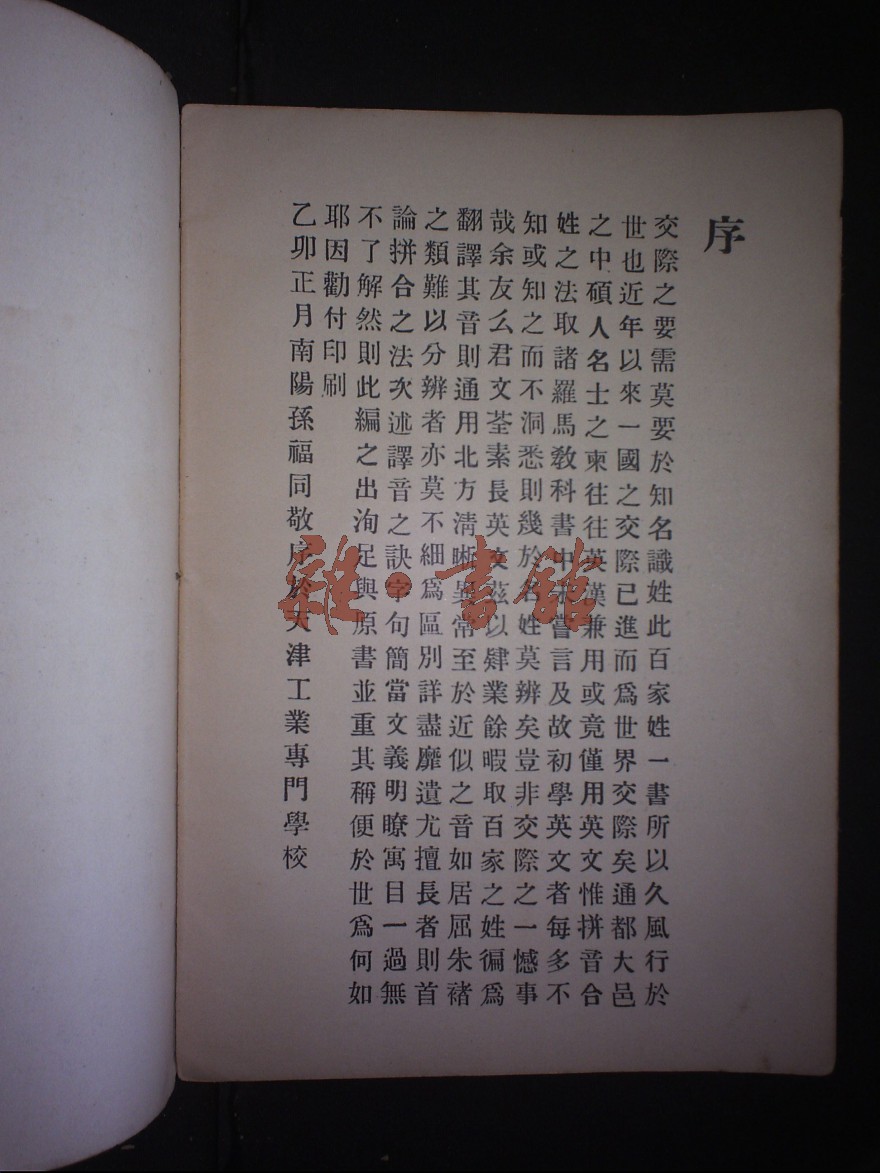 序
交際之要需莫要於知名識姓此百家姓一書所以久風行於
世也近年以來一國之交際已進而爲世界交際矣通都大邑
之中碩人名士之柬往往英漢兼用或竟僅用英文惟拼音合
姓之法取諸羅馬敎科書中未嘗言及故初學英文者每多不
知或知之而不洞悉則幾於名姓莫辨矣豈非交際之一憾事
哉余友么君文荃素長英文茲以肄業餘暇取百家之姓徧爲
翻譯其音則通用北方淸晰異常至於近似之音如居屈朱褚
之類難以分辨者亦莫不細爲區別詳盡靡遺尤擅長者則首
論拼合之法次述譯音之訣字句簡當文義明瞭寓目一過無
不了解然則此編之出洵足與原書並重其稱便於世爲何如
耶因勸付印刷
乙卯正月南陽孫福同敬序於天津工業專門學校
雜·書館